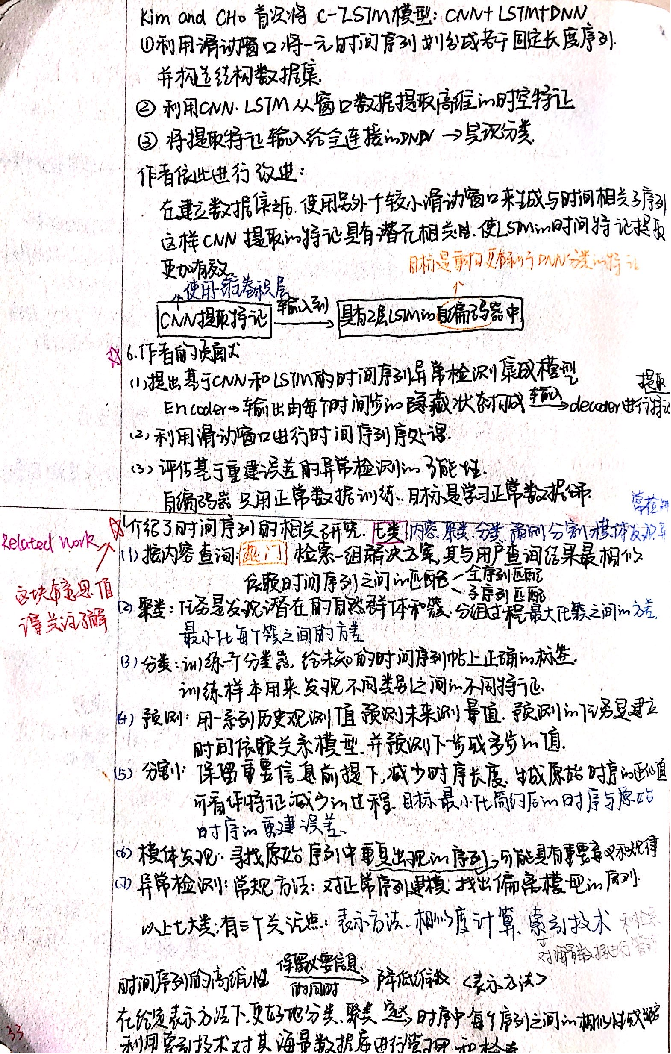 Kim and CHo 首次将 C-LSTM模型: CNN+LSTM+DNN
①利用滑动窗口将一元时间序列划分成若干固定长度序列
并构造结构数据集
② 利用CNN·LSTM从窗口数据提取高维的时空特征
③ 将提取特征输入给全连接的DNN → 实现分类
作者依此进行改进:
在建立数据集后,使用另外一个较小滑动窗口来生成与时间相关子序列
这样CNN提取的特征具有潜在相关性,使LSTM的时间特征提取
更加有效
目标是
使用一维卷积层
CNN提取特征 输入到 具有2层LSTM的自编码器中
6.作者的贡献
(1)提出基于CNN和LSTM的时间序列异常检测集成模型
Encoder→输出由每个时间步的隐藏状态构成 输入 decoder进行特征
提取
(2) 利用滑动窗口进行时间序列预处理
(3) 评估基于重建误差的异常检测的可能性
自编码器 只用正常数据训练 目标是学习正常数据
Related work
这块有意思值
得关注了解
介绍了时间序列的相关研究 七类 内容 聚类 分类 预测 分割 模体发现
(1) 按内容查询: 热门 检索一组解决方案,其与用户查询结果最相似
依赖时间序列之间的匹配 全序列匹配
子序列匹配
(2) 聚类: 任务是发现潜在的自然群体和簇,分组过程最大化簇之间的方差
最小化每个簇之间的方差
(3) 分类: 训练一个分类器,给未知的时间序列帖上正确的标签
训练样本用来发现不同类别之间的不同特征
(4) 预测: 用一系列历史观测值预测未来测量值 预测的任务是建立
时间依赖关系模型,并预测下一步或多步的值
(5) 分割: 保留重要信息前提下,减少时序长度,生成原始时序的近似值
可看作特征减少的过程 目标最小化简约后的时序与原始
时序的重建误差
(6) 模体发现: 寻找原始序列中重复出现的序列,可能具有重要意义
(7) 异常检测: 常规方法: 对正常序列建模 找出偏离模型的序列
以上七大类,有三个关注点: 表示方法、相似度计算、索引技术
时间序列的高维性 保留必要信息 的同时 降低维数 <表示方法>
在给定表示方法下,更好地分类、聚类 时序中每个序列之间的相似
利用索引技术对其海量数据库进行管理和检索
33